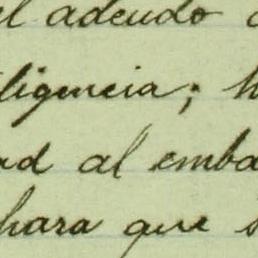 el adeudo
ligencia; h
ad al emba
hara que s